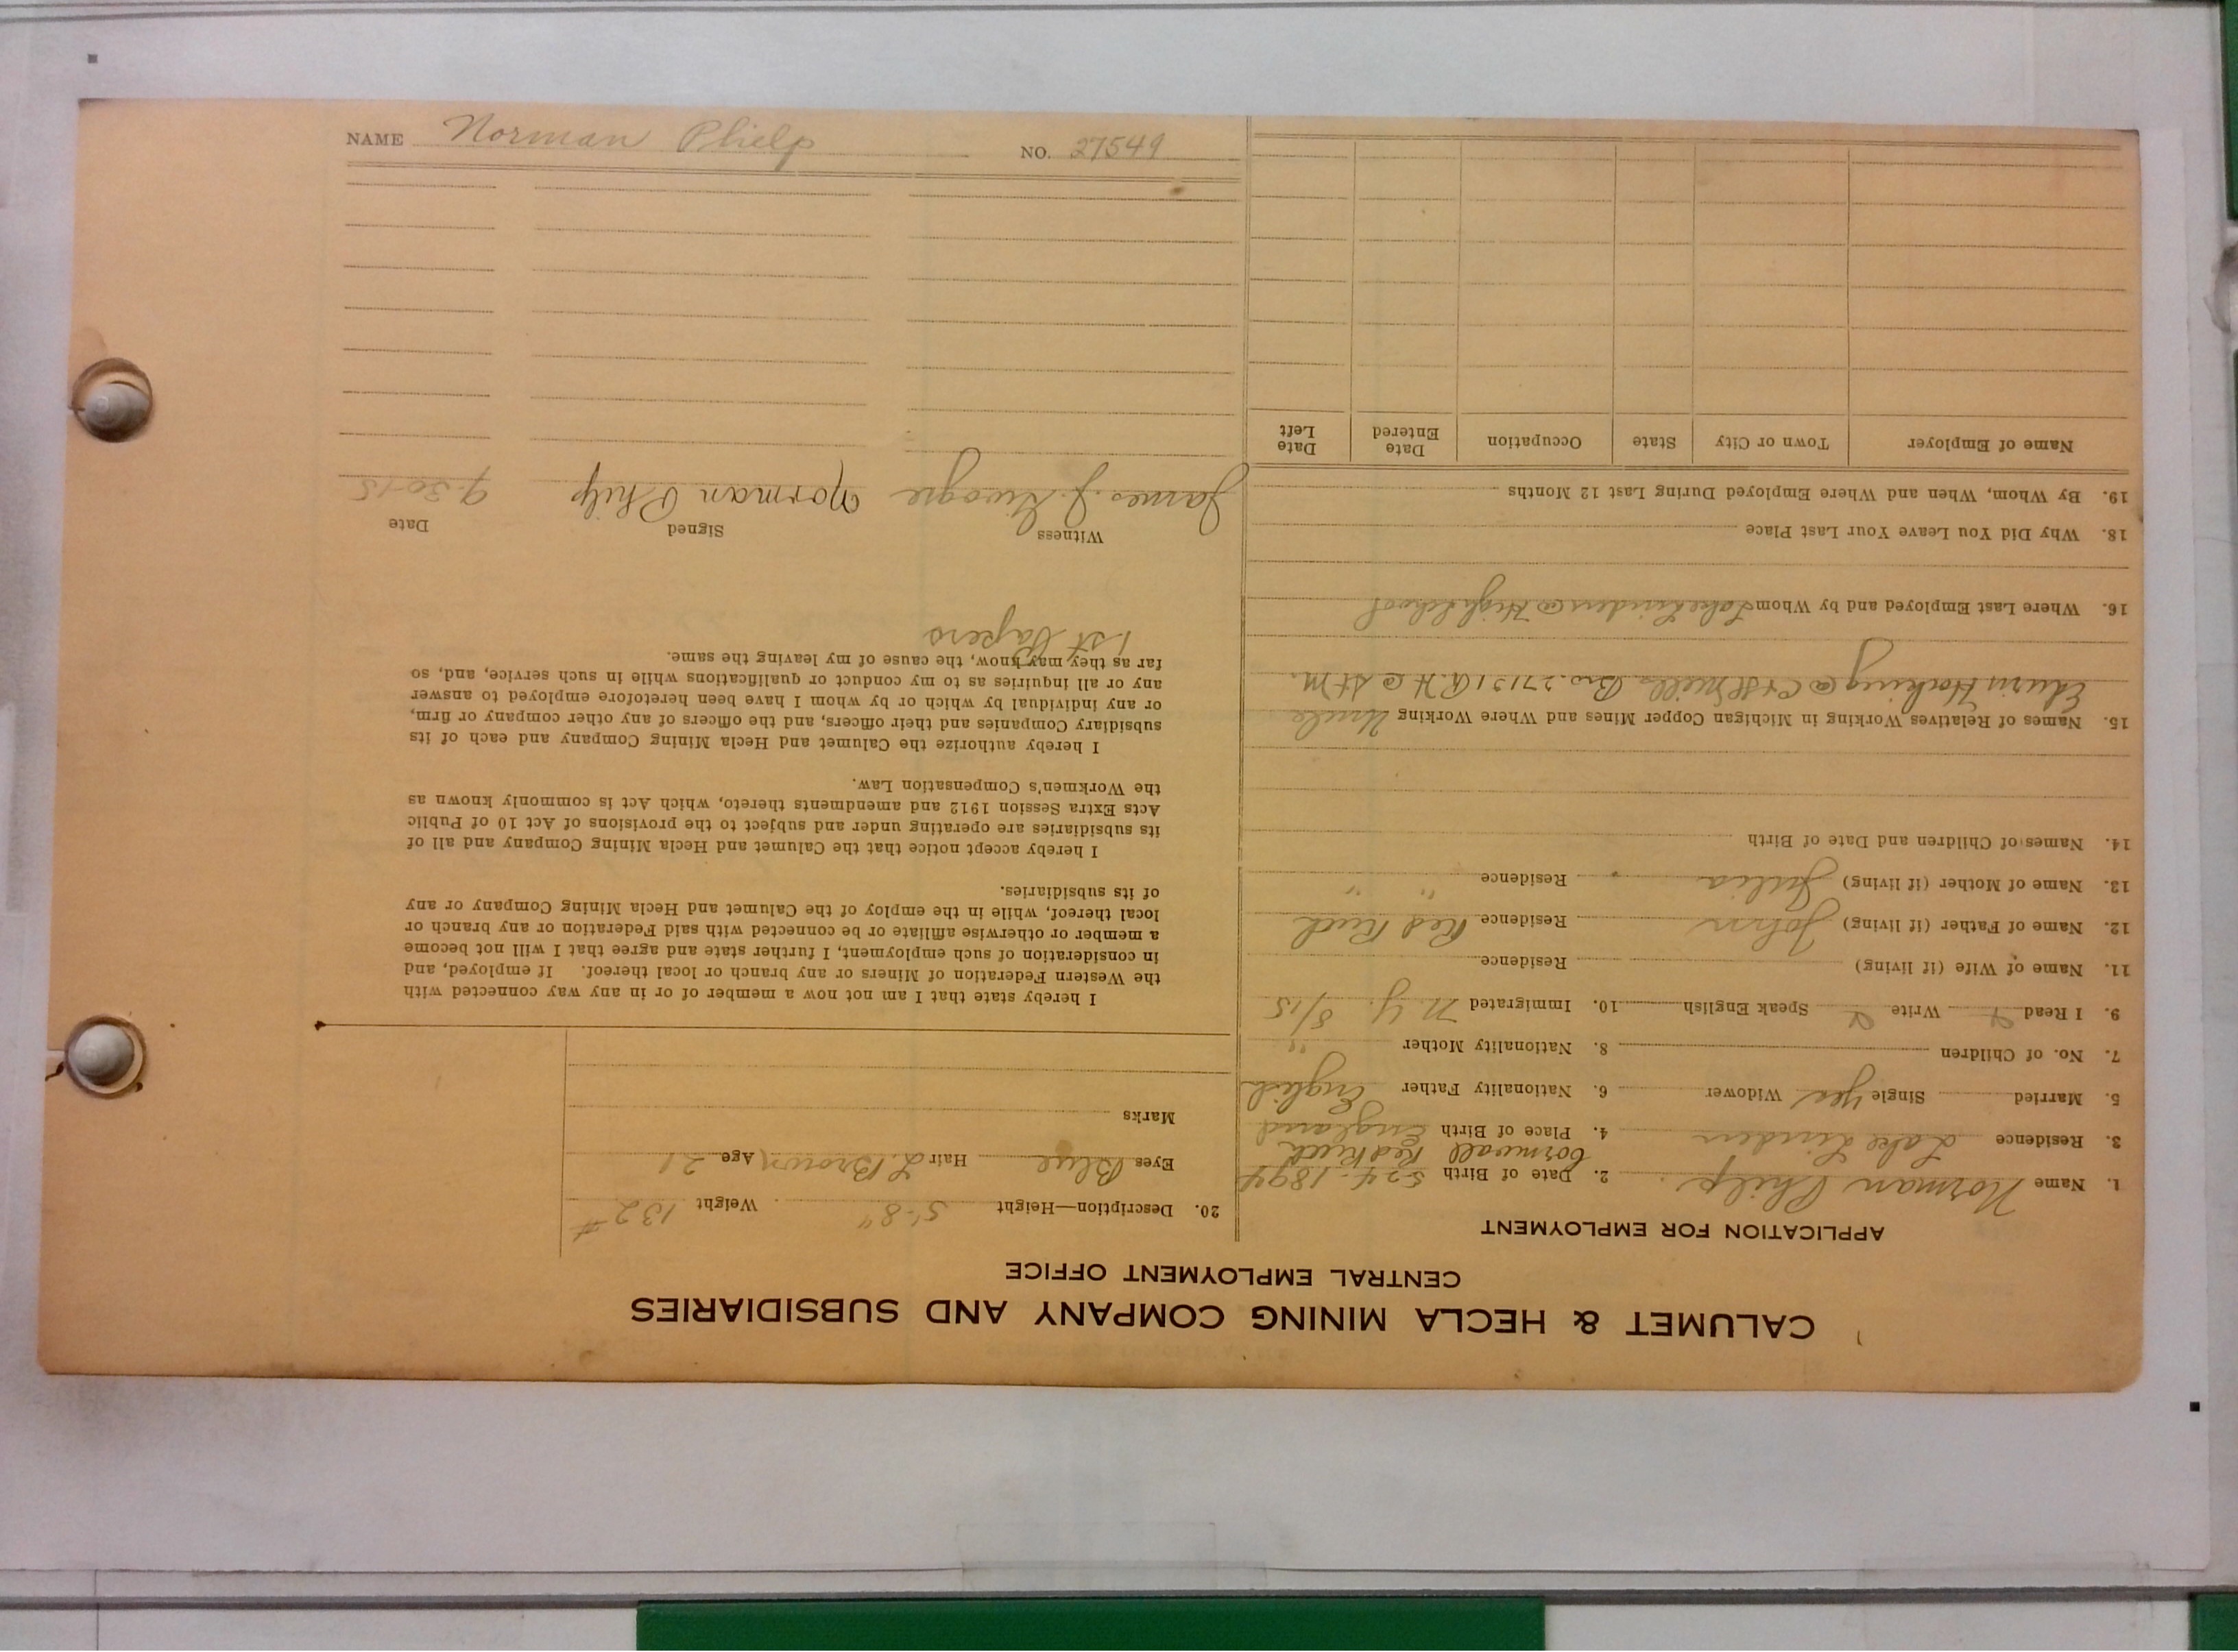 CALUMET & HECLA MINING COMPANY AND SUBSIDIARIES
CENTRAL EMPLOYMENT OFFICE
APPLICATION FOR EMPLOYMENT
1. Name Norman Philp 2. Date of Birth 5-24-1894
Cornwall Redruth
3. Residence Lake Linden 4. Place of Birth England
5. Married Single Yes Widower 6. Nationality Father English
7. No. of Children 8. Nationality Mother "
9. I Read Write Speak English 10. Immigrated N.Y. 8/15
11. Name of Wife (if living) Residence
12. Name of Father (if living) John Residence Red Rud
13. Name of Mother (if living) Julia Residence " "
14. Names of Children and Date of Birth
15. Names of Relatives Working in Michigan Copper Mines and Where Working Uncle
Edwin Hocking @ C & H Mills Bro. 27131 @ H @ St M.
16. Where Last Employed and by Whom Lake Linden @ High School
18. Why Did You Leave Your Last Place
19. By Whom, When and Where Employed During Last 12 Months
Name of Employer Town or City State Occupation Date Entered Date Left
20. Description—Height 5'-8" Weight 132#
Eyes Blue Hair L. Brown Age 21
Marks
I hereby state that I am not now a member of or in any way connected with
the Western Federation of Miners or any branch or local thereof. If employed, and
in consideration of such employment, I further state and agree that I will not become
a member or otherwise affiliate or be connected with said Federation or any branch or
local thereof, while in the employ of the Calumet and Hecla Mining Company or any
of its subsidiaries.
I hereby accept notice that the Calumet and Hecla Mining Company and all of
its subsidiaries are operating under and subject to the provisions of Act 10 of Public
Acts Extra Session 1912 and amendments thereto, which Act is commonly known as
the Workmen's Compensation Law.
I hereby authorize the Calumet and Hecla Mining Company and each of its
subsidiary Companies and their officers, and the officers of any other company or firm,
or any individual by which or by whom I have been heretofore employed to answer
any or all inquiries as to my conduct or qualifications while in such service, and, so
far as they may know, the cause of my leaving the same.
1st Papers
Witness Signed Date
James. J. Norman Philp 9-30-15
NAME Norman Phielp NO. 27549